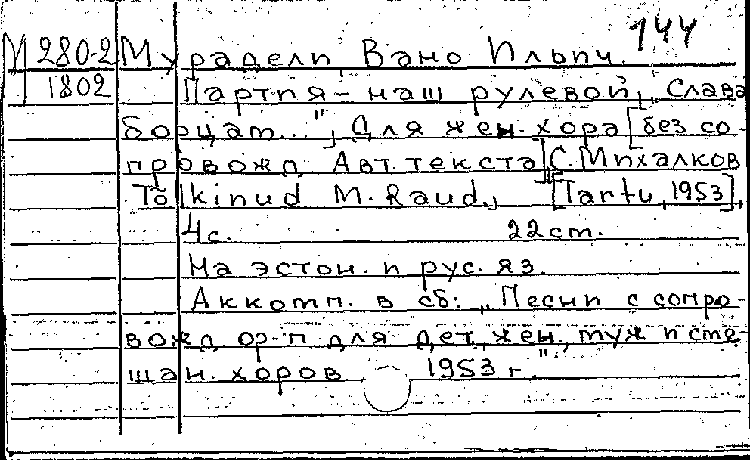 144
М 280-2 Мурадели, Вано Ильич.
1802 "Партия – наш рулевой", "Слава
борцам...", Для жен. хора [без со-
провожд. Авт. текста] С. Михалков
Tõlkinud M. Raud., [Tartu, 1953],
4 с. 22 cm.
На эстон. и рус. яз.
Аккомп. в сб: "Песни с сопро-
вожд. ор-п для дет., жен., муж и сме-
шан. хоров 1953 г."